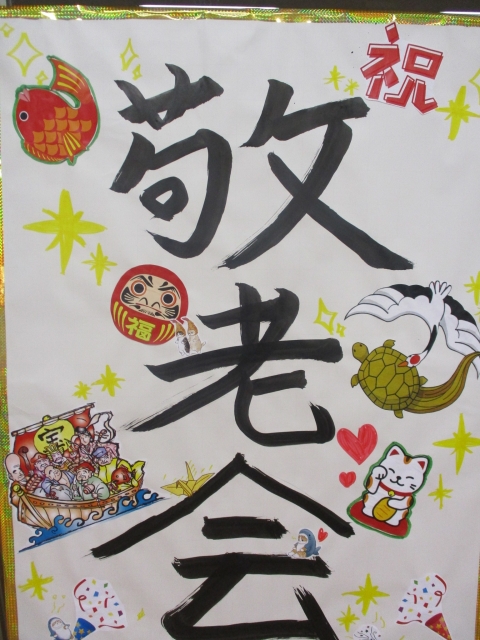 祝
敬
老
会
福
宝